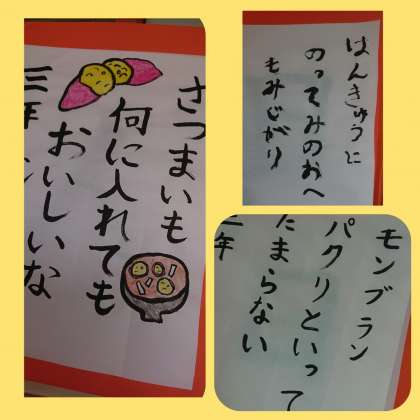 さつまいも
何に入れても
おいしいな
三年
はんきゅうと
のってみのおへ
もみじがり
モンブラン
パクリといって
たまらない
三年